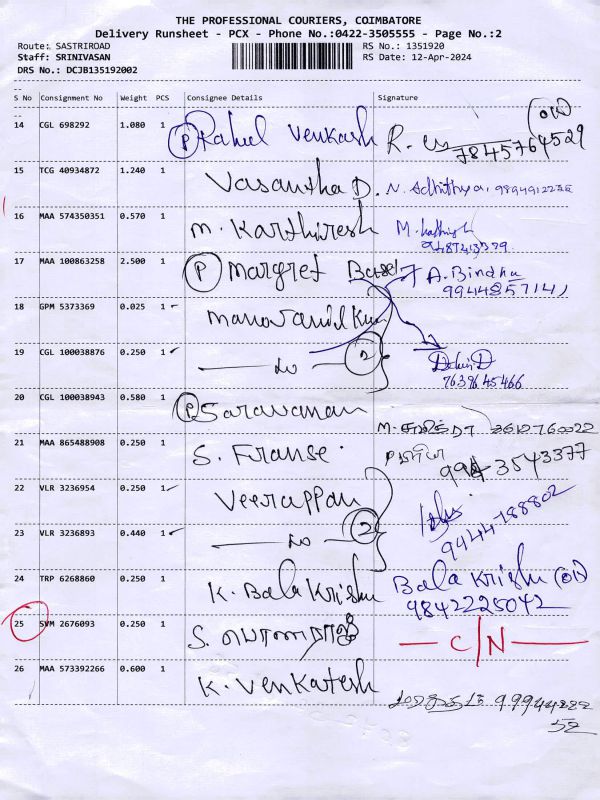 THE PROFESSIONAL COURIERS, COIMBATORE
Delivery Runsheet - PCX - Phone No.:0422-3505555 - Page No.:2
Route: SASTRIROAD RS No.: 1351920
Staff: SRINIVASAN RS Date: 12-Apr-2024
DRS No.: DCJB135192002
S No Consignment No Weight PCS Consignee Details Signature
14 CGL 698292 1.080 1 P Rahul Venkash R.
7845764529
15 TCG 40934872 1.240 1 Vasantha D. N. Adhithya,
16 MAA 574350351 0.570 1 M. Karthiresh M.
17 MAA 100863258 2.500 1 P Margret A. Bindhu
9944857141
18 GPM 5373369 0.025 1
19 CGL 100038876 0.250 1 2
7639645466
20 CGL 100038943 0.580 1 P Saravanan M.
21 MAA 865488908 0.250 1 S. Franse
9943543377
22 VLR 3236954 0.250 1 Veerappan
23 VLR 3236893 0.440 1 2 9444788802
24 TRP 6268860 0.250 1 K. Bala Krishn Bala Krishn
9842225042
25 SVM 2676093 0.250 1 S. C/N
26 MAA 573392266 0.600 1 K. Venkatesh
99944222
52